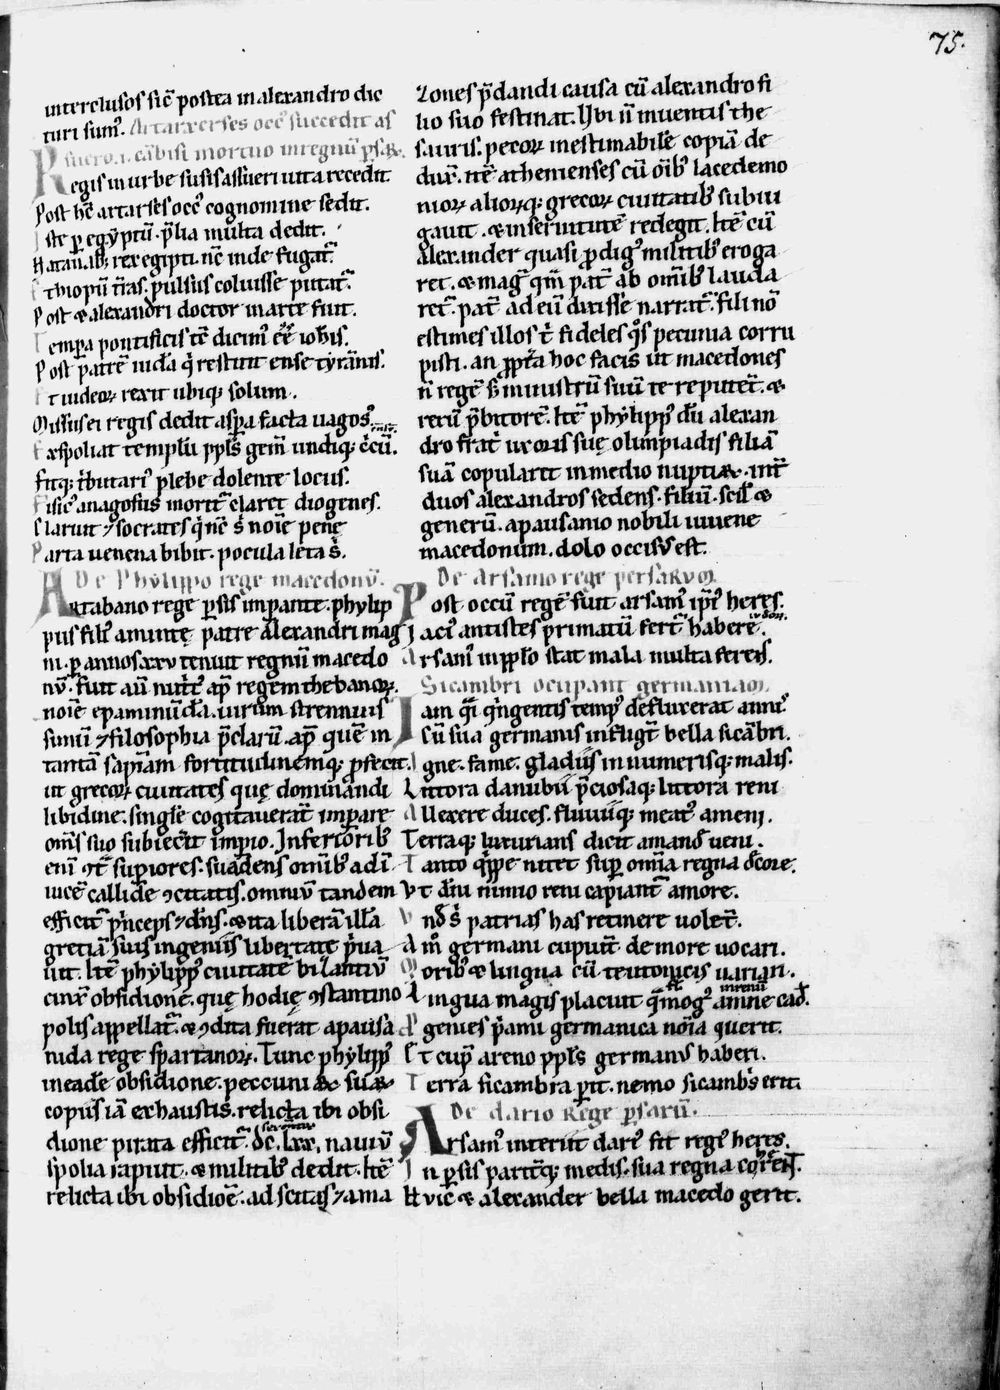 75.
interclusos sic̄ postea in alexandro dic
turi sumꝰ. Artarxerses occꝰ succedit as
suero .i. cābisi mortuo in regnū ꝑsaꝝ.
Regis in urbe susis assueri uita recedit.
Post hc̄ artarses occꝰ cognomine sedit.
Iste ꝑ egyptū p̄lia multa dedit.
Natanabꝫ rex egipti nc̄ inde fugat᷑
Et thiopū t̄ras pulsus coluisse putat᷑.
Post & alexandri doctor in arte fuit.
Tempꝛa pontificis tc̄ dicimꝰ eē̄ iohis.
Post patrē iuda q̇ restitit ense tyrānis.
Et iudeoꝝ rexit ubiqꝫ solum.
Missus ei regis dedit aspa facta uagosꝰ
Exspoliat templū ppl̄s gem̄ undiqꝫ
Fitqꝫ t̄butariꝰ plebe dolente locus.
Fisicꝰ anagosus morit᷑ claret diogenes.
Claruit ⁊ socrates q̇ nc̄ s̄ noīe pene
Parta uenena bibit. pocula leta s̄.
De Phylippo rege macedonū.
Artabano rege ꝑsis imꝑante. phylip
pus filiꝰ aminte patre alexandri mag
ni. ꝑ annos xxv tenuit regnū macedo
nū. fuit aū nut̄tꝰ ap̄ regem thebanoꝝ.
noīe epaminūda. uirum strennuis
simū ⁊ filosophia p̄clarū. ap̄ quē in
tantā sapīam fortitudinemqꝫ ꝓfecit.
ut grecoꝝ ciuitates quę dominandi
libidine. singlē cogitauerat̄ imꝑare
om̄s suo subiecit̄ impio. Inferioribꝰ
enī ꝯt̄ suꝑiores. suadens omībꝰ adī
uicē callide ꝯcitatis. omniū tandem
efficit᷑ p̄nceps ⁊ dn̄s. & ita liberā illā
gretiā suis ingeniis libertate p̄ua
uit. Itē phylippꝰ ciuitatē bizantiū
cinxꝰ obsidione. quę hodię ꝯstantino
polis appellat᷑. & ꝯdita fuerat a pausa
nida rege spartanoꝝ. Tunc phylippꝰ
in eadē obsidione. peccuniaꝝ suaꝝ
copiis iā exhaustis. relicta ibi obsi
dione pirata efficit᷑. dc̄. lxx. nauiū
spolia rapuit. & militibꝰ dedit. Itē
relicta ibi obsidiōe. ad scitas ⁊ ama
zones p̄dandi causa cū alexandro fi
lio suo festinat. Ubi ii inuentis the
sauris. pecoꝝ inestimabilē copiā de
duxꝰ. itē athenienses cū oībꝰ lacedemo
nioꝝ alioꝝqꝫ grecoꝝ ciuitatibꝰ subiu
gauit. & in seruitutē redegit. Itē cū
Alexander quasi ꝓdigꝰ militibꝰ eroga
ret. & magꝰ qm̄ pat̄ ab omībꝰ lauda
ret᷑. pat̄ ad eū dixisse narrat᷑. fili nō
estimes illos t̄ fideles qͦs pecunia corru
pisti. an ꝓpt̄a hoc facis ut macedones
n̄ regē s̄ ministrū suū te reputet̄. &
rerū p̄bitorē. Itē phylippꝰ dū alexan
dro frat̄ uxoris suę olimpiadis filiā
suā copularet in medio nuptiaꝝ. int̄
duos alexandros sedens. filiū. scil̄ &
generū. a pausanio nobili iuuene
macedonum. dolo occisus est.
De Arsamo rege persarum.
Post occū regē fuit arsamꝰ ipī heres.
Iacꝰ antistes primatū fert᷑ haberē.
Arsamꝰ in ppl̄o stat mala multa ferens.
Sicambri ocupant germaniam.
Iam qͥ q̇ngentis tempꝰ defluxerat annīꝰ
Cū sua germanis infligt̄ bella sicābri.
Igne. fame. gladiis innumerisqꝫ malis.
Littora danubii p̄ciosaqꝫ littora reni
Allexere duces. fluuiiqꝫ meatꝰ ameni.
Terraqꝫ luxurians dicit amandꝰ ueni.
Tanto q̇ppe nitet suꝑ omīa regna decore.
Vt dn̄i nimio reni capiant᷑ amore.
Vn̄ s̄ patrias has retinere uolet̄.
Am̄ germani cupiūt de more uocari.
Moribꝰ & lingua cū teutonicis uariari.
Lingua magis placuit
Agenies p̄ami germanica noīa querit.
Et cupꝰ a reno ppl̄s germanꝰ haberi.
Terra sicambra ꝑit. nemo sicambꝰ erit.
De dario Rege ꝑsarū.
Arsamꝰ interiit dariꝰ fit regꝰ heres.
In ꝑsis parteqꝫ medis. sua regna
Huic & alexander bella macedo gerit.